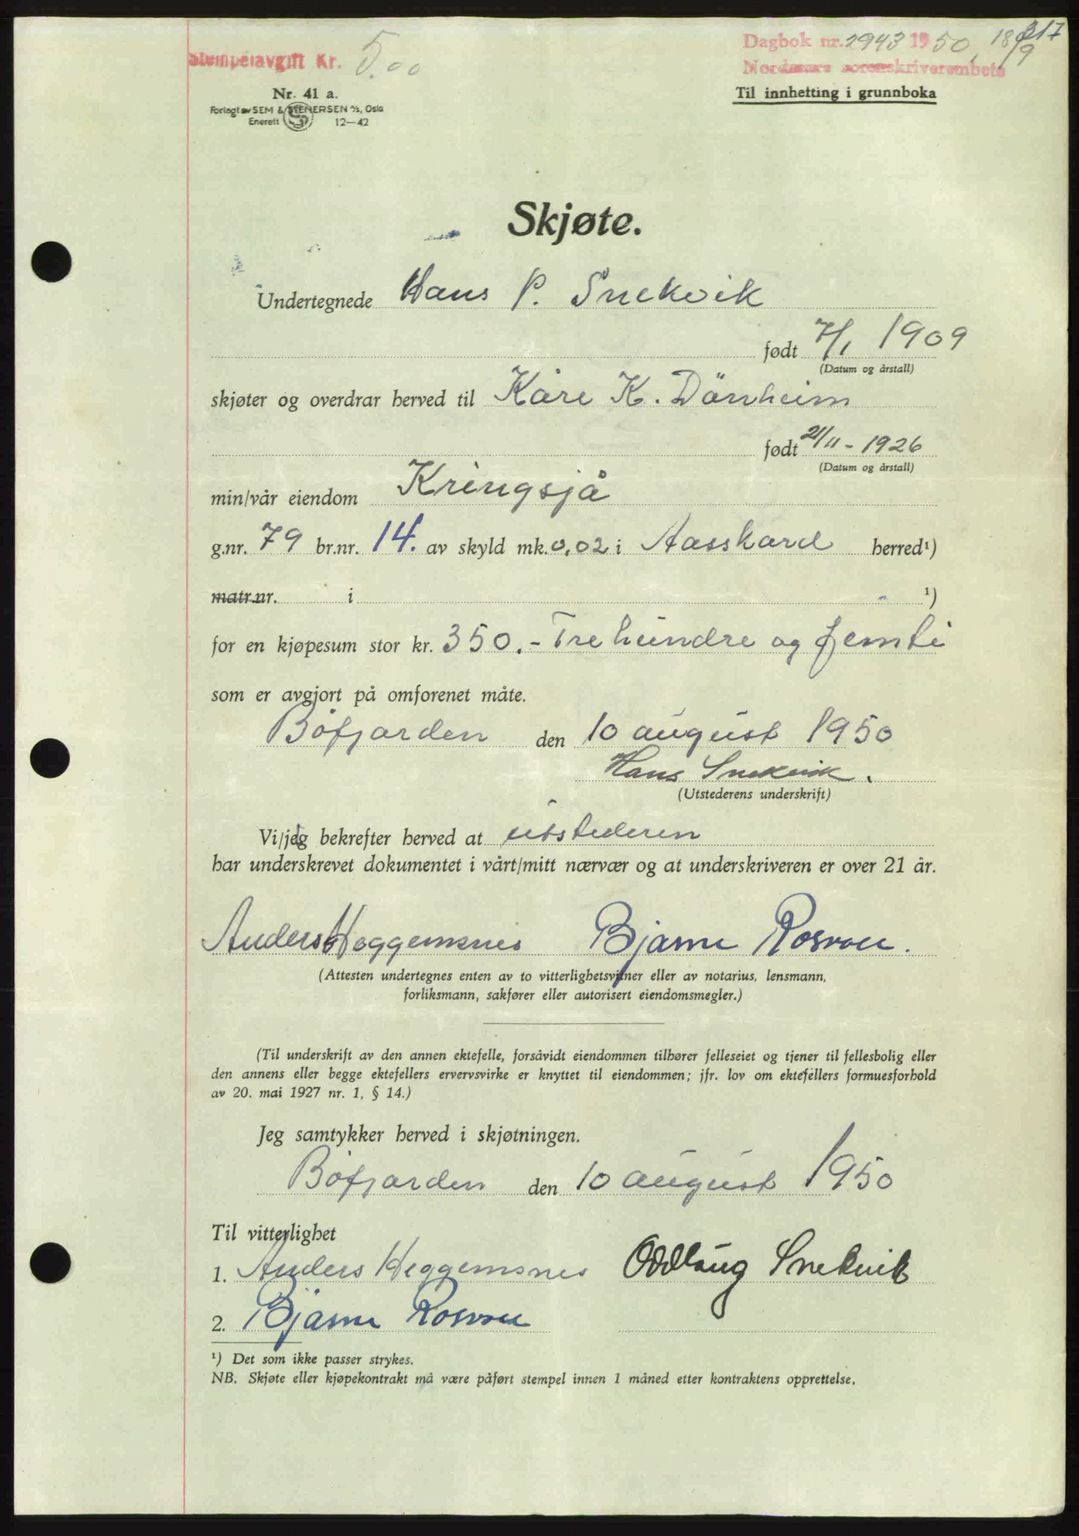 Stempelavgift Kr. 5.00
Dagbok nr. 2943 1950, 18/9 217
Nordmøre sorenskriverembete
Til innhefting i grunnboka
Nr. 41 a.
Forlagt av SEM & STENERSEN A/S, Oslo
Enerett 12—42
Skjøte.
Undertegnede Hans P. Snekvik
født 7/1 1909
(Datum og årstall)
skjøter og overdrar herved til Kåre K. Dönheim
født 21/11-1926
(Datum og årstall)
min/vår eiendom Kringsjå
g.nr. 79 br.nr. 14. av skyld mk. 0,02 i Aasskard herred¹)
matr.nr. i ¹)
for en kjøpesum stor kr. 350.- Tre hundre og femti
som er avgjort på omforenet måte.
Bøfjorden den 10 august 1950
Hans Snekvik.
(Utstederens underskrift)
Vi/jeg bekrefter herved at utstederen
har underskrevet dokumentet i vårt/mitt nærvær og at underskriveren er over 21 år.
Anders Heggemsnes Bjarne Rosvoll.
(Attesten undertegnes enten av to vitterlighetsvitner eller av notarius, lensmann,
forliksmann, sakfører eller autorisert eiendomsmegler.)
(Til underskrift av den annen ektefelle, forsåvidt eiendommen tilhører felleseiet og tjener til fellesbolig eller
den annens eller begge ektefellers ervervsvirke er knyttet til eiendommen; jfr. lov om ektefellers formuesforhold
av 20. mai 1927 nr. 1, § 14.)
Jeg samtykker herved i skjøtningen.
Bøfjorden den 10 august 1950
Til vitterlighet
1. Anders Heggemsnes Oddlaug Snekvik
2. Bjarne Rosvoll
¹) Det som ikke passer strykes.
NB. Skjøte eller kjøpekontrakt må være påført stempel innen 1 måned etter kontraktens opprettelse.